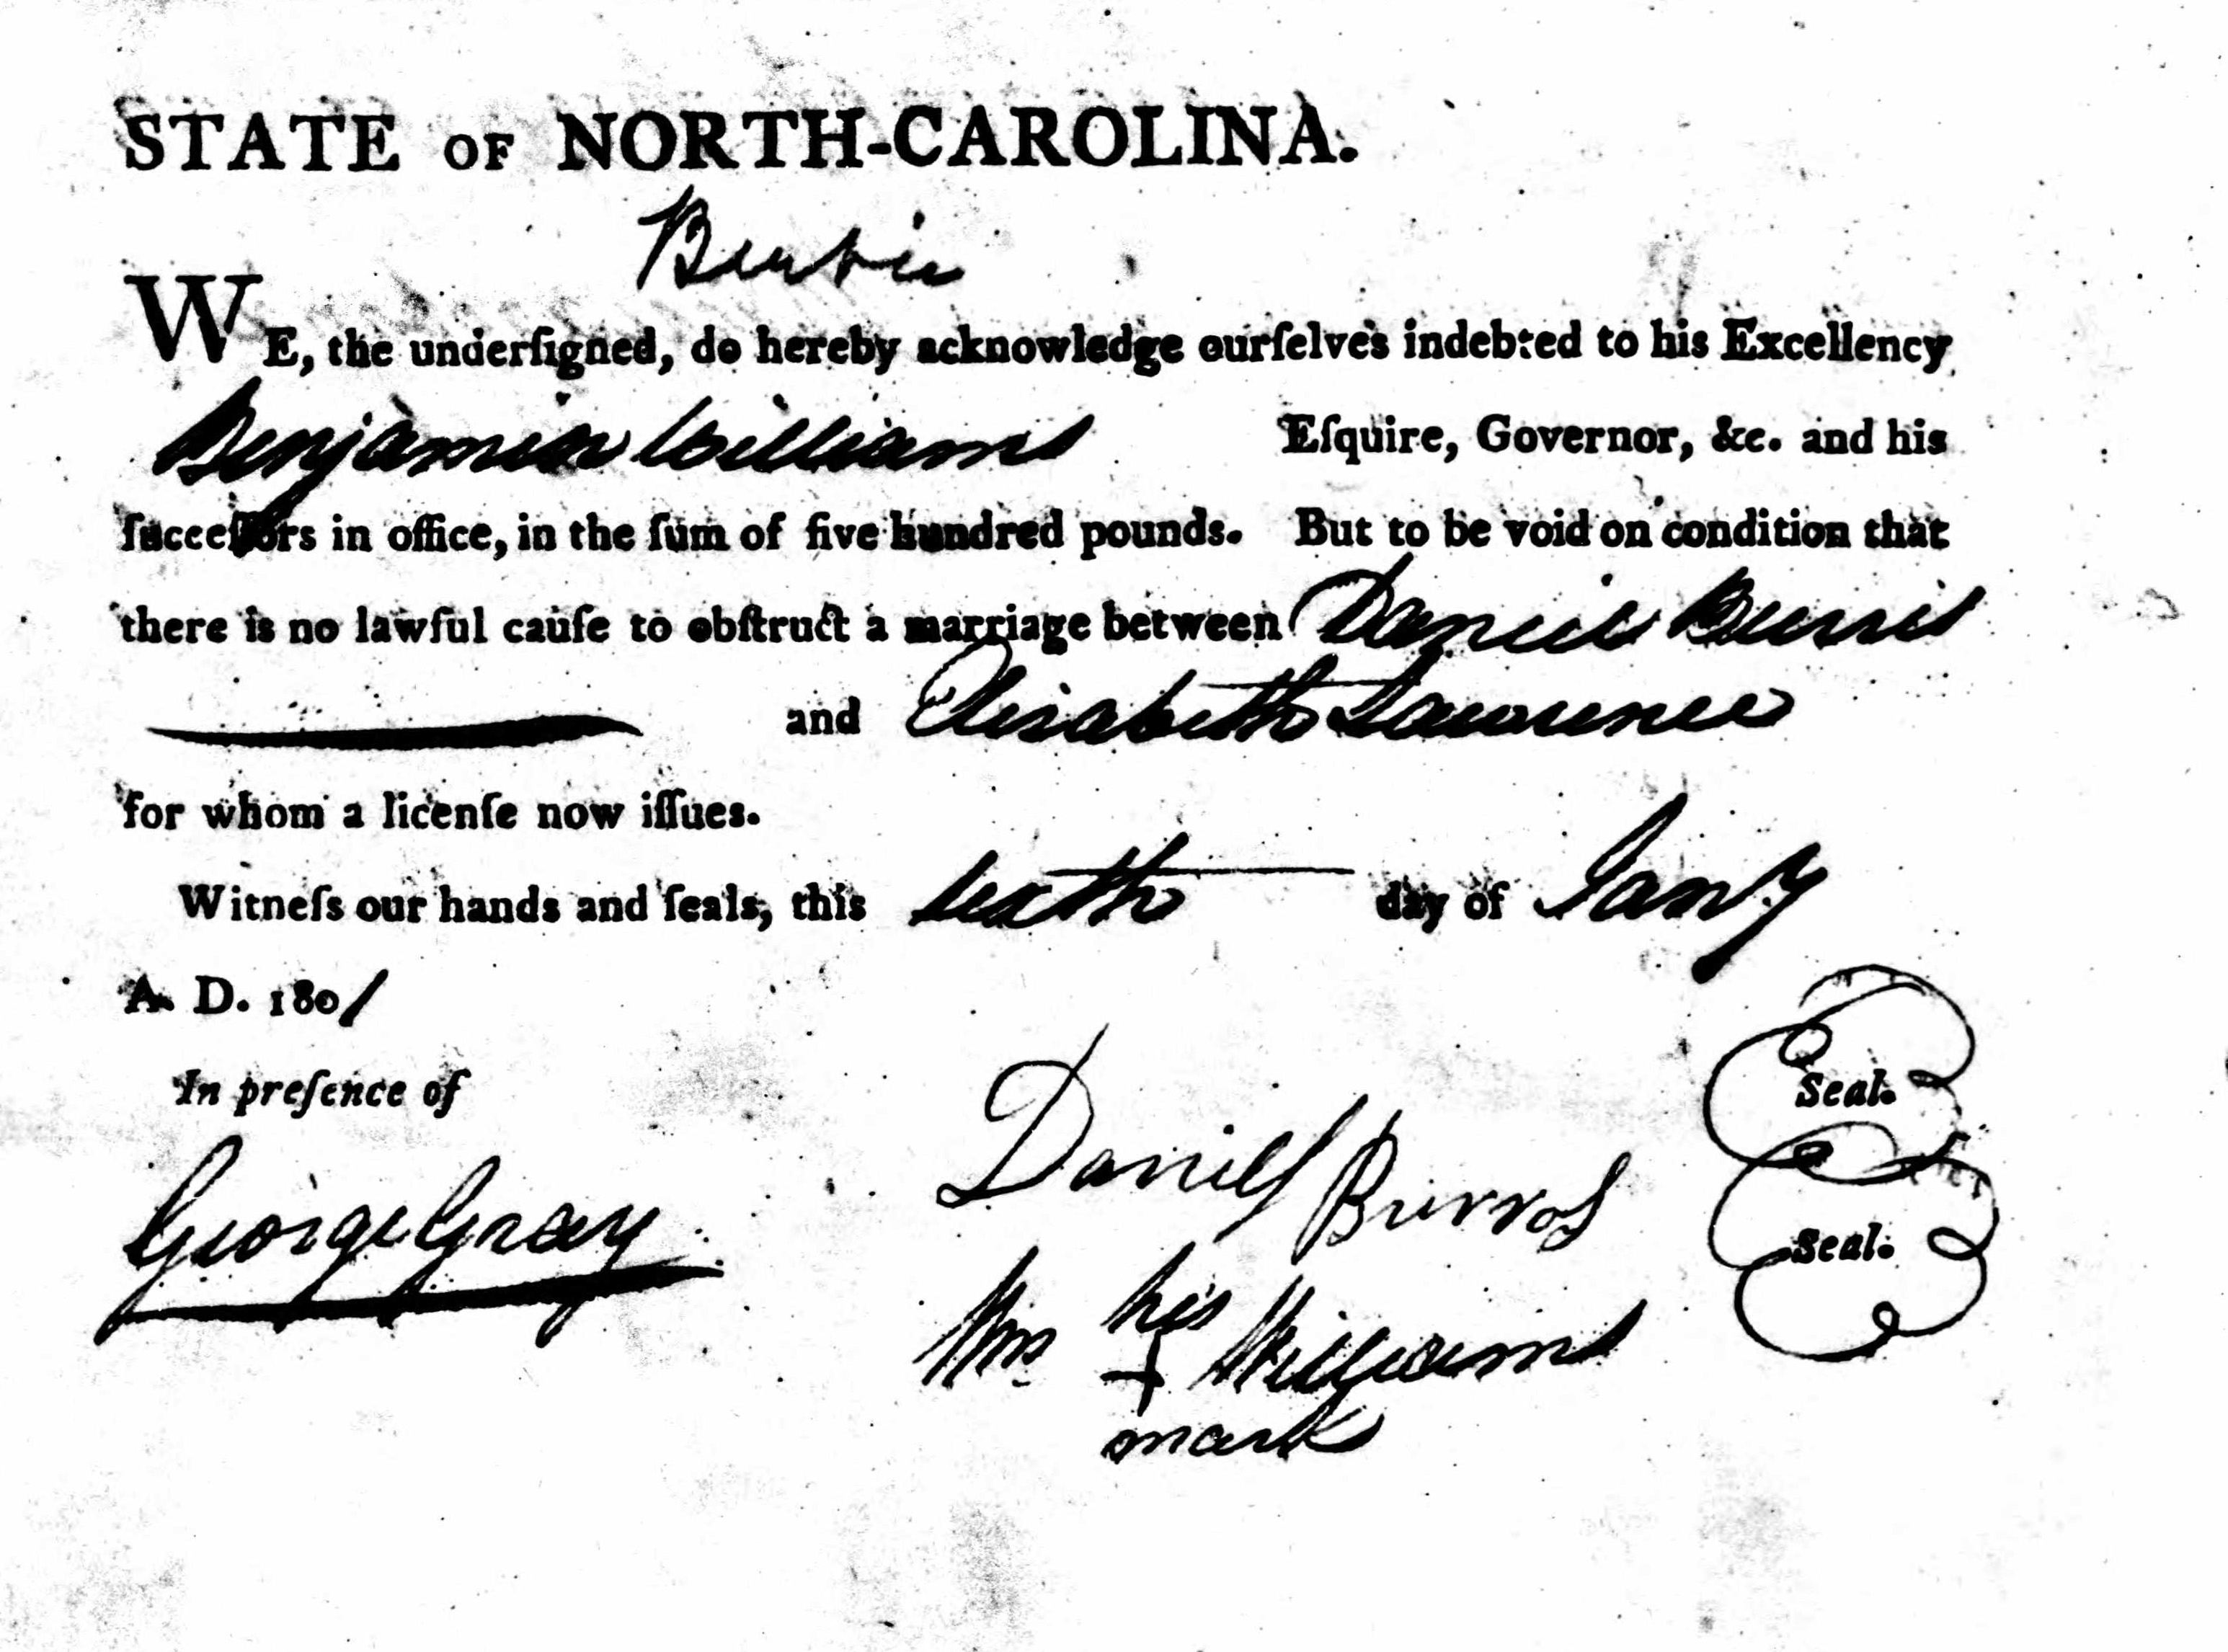 STATE OF NORTH-CAROLINA.
Bertie
WE, the underſigned, do hereby acknowledge ourſelves indebted to his Excellency
Benjamin Williams Eſquire, Governor, &c. and his
ſucceſſors in office, in the ſum of five hundred pounds. But to be void on condition that
there is no lawful cauſe to obſtruct a marriage between Daniel Burris
and Elisabeth Lawrence
for whom a licenſe now iſſues.
Witneſs our hands and ſeals, this day of Jany
A. D. 1801
In preſence of
Seal.
George Gray
Daniel Burros
Seal.
his
Wm + Williams
mark